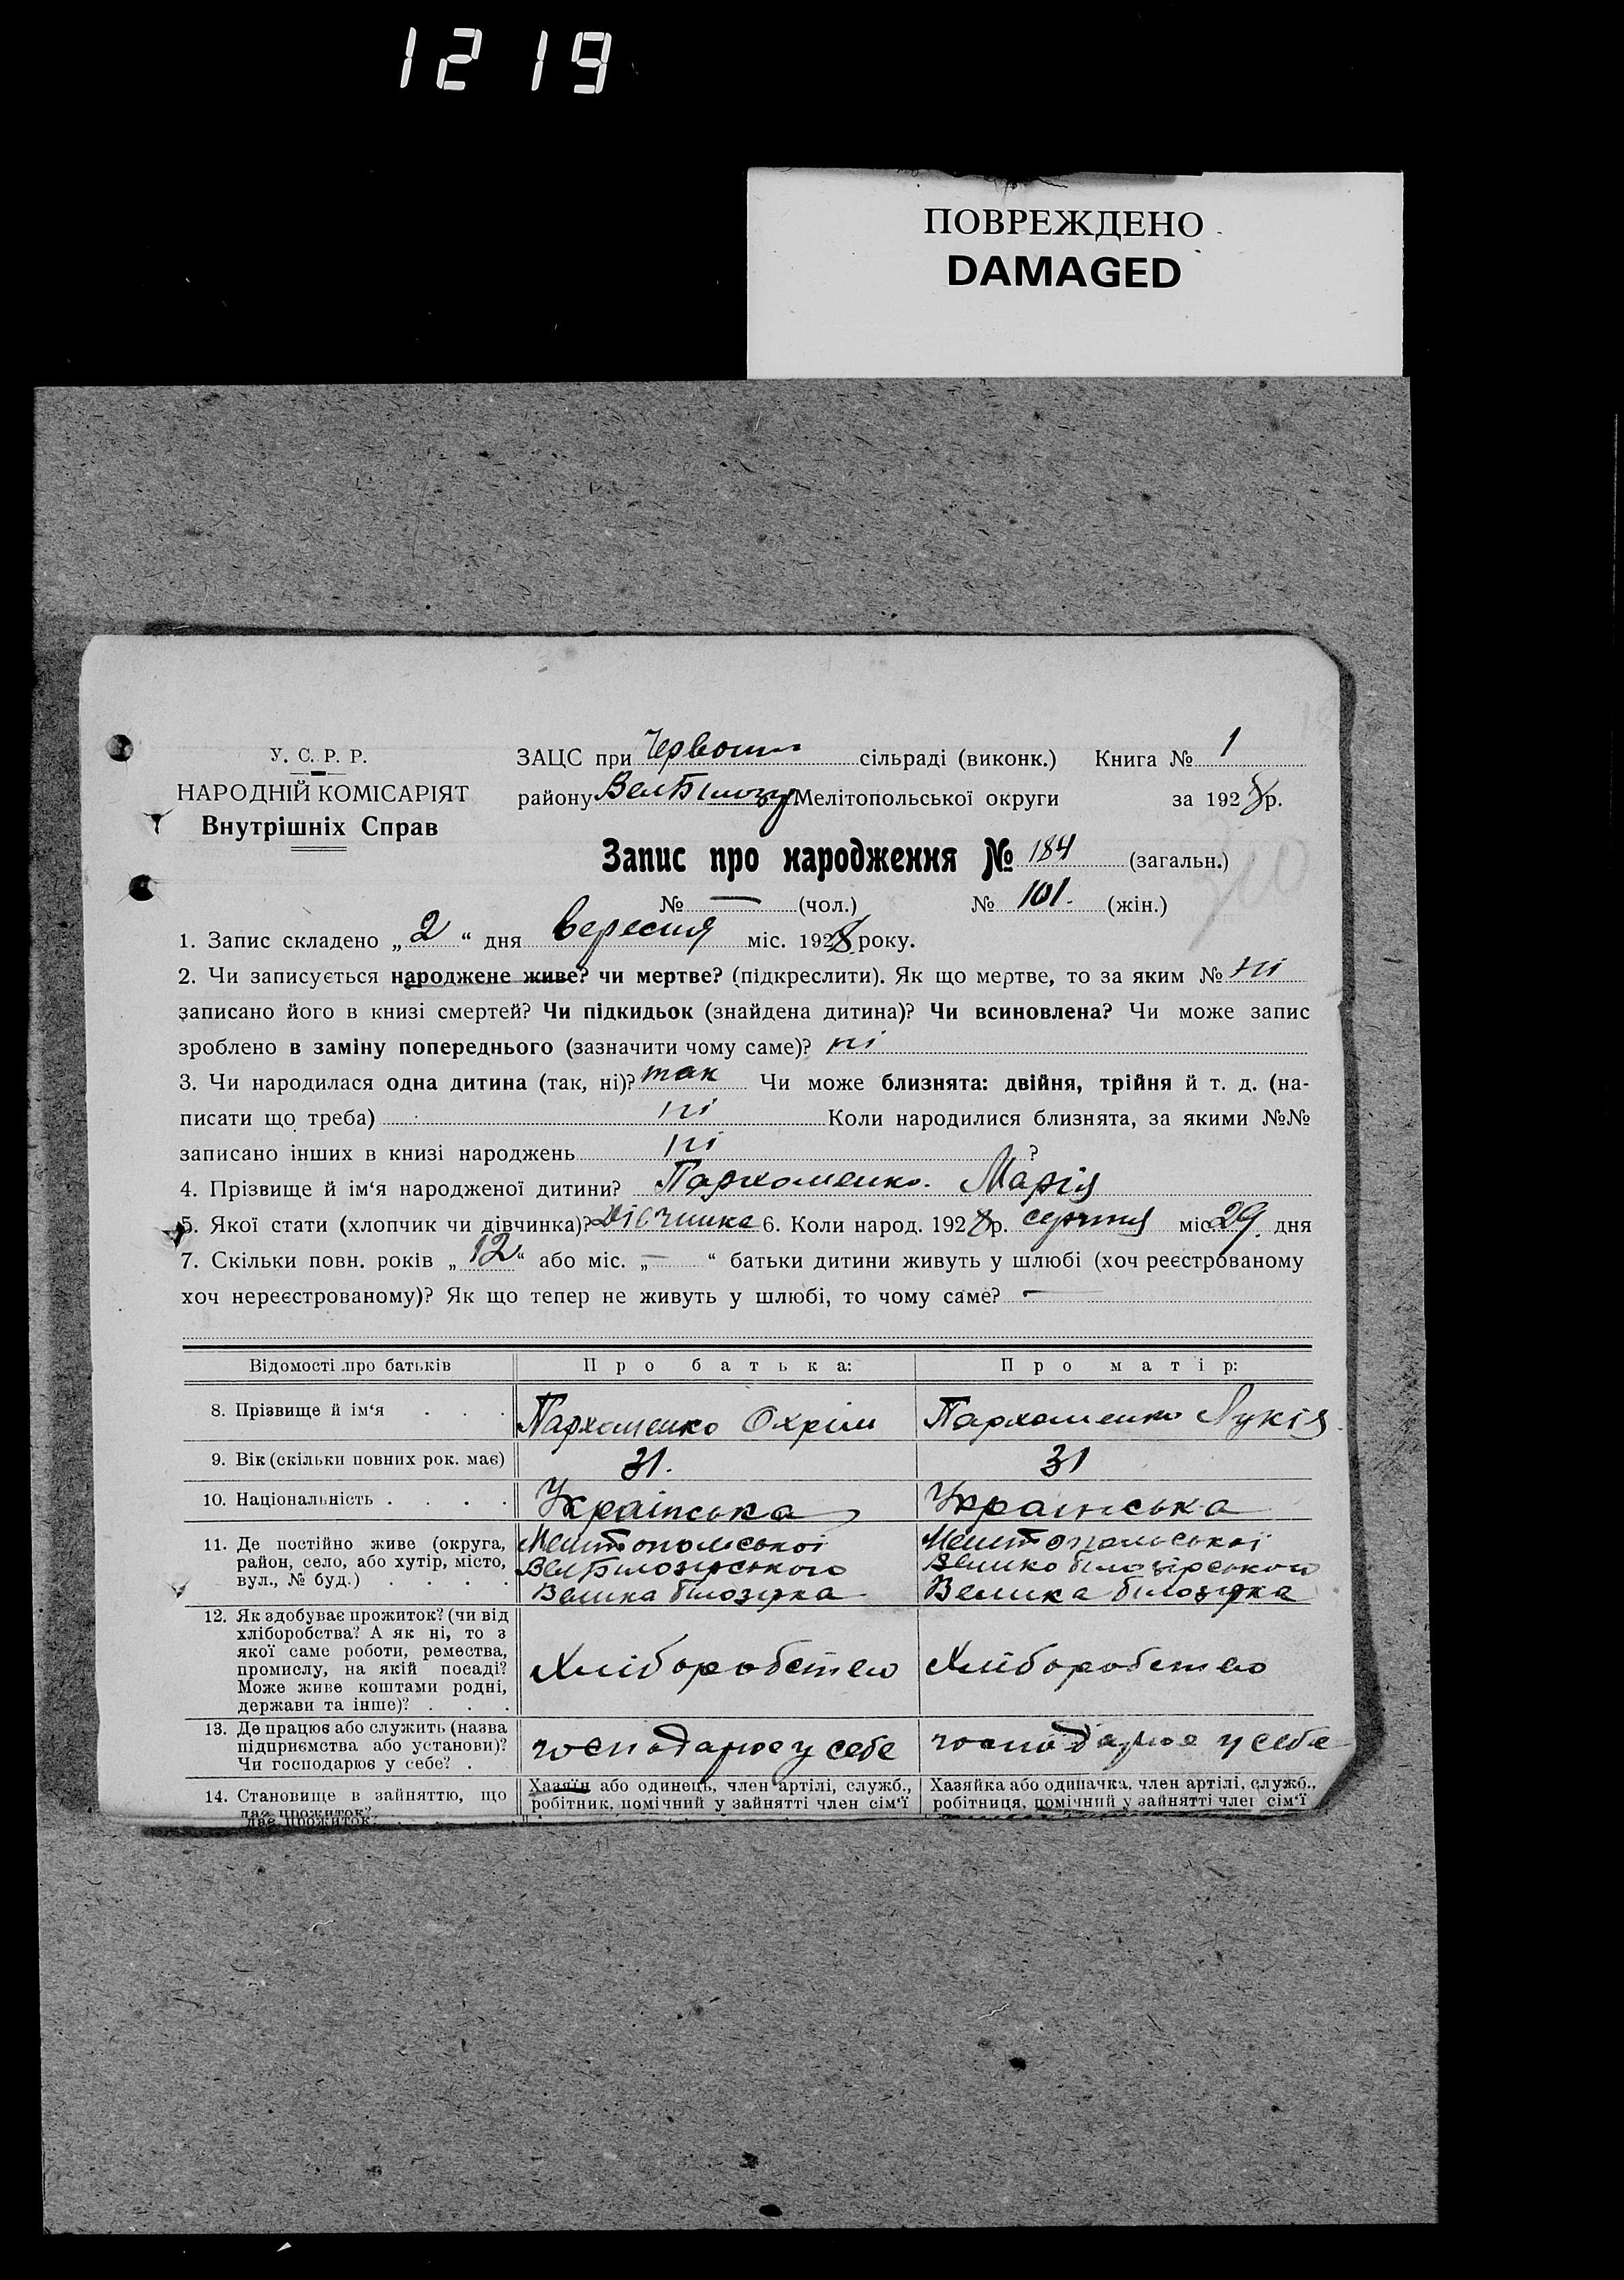 1219
ПОВРЕЖДЕНО
DAMAGED
У. С. Р. Р.
НАРОДНІЙ КОМІСАРІЯТ
Внутрішніх Справ
ЗАЦС при сільраді (виконк.) Книга № 1
району Мелітопольської округи за 1928 р.
Запис про народження № 184 (загальн.)
№ — (чол.) № 101. (жін.)
1. Запис складено „2“ дня вересня міс. 1928 року.
2. Чи записується народжене живе? чи мертве? (підкреслити). Як що мертве, то за яким № ні
записано його в книзі смертей? Чи підкидьок (знайдена дитина)? Чи всиновлена? Чи може запис
зроблено в заміну попереднього (зазначити чому саме)? ні
3. Чи народилася одна дитина (так, ні)? так Чи може близнята: двійня, трійня й т. д. (на-
писати що треба) ні Коли народилися близнята, за якими №№
записано інших в книзі народжень ні ?
4. Прізвище й ім‘я народженої дитини? Пархоменко. Марія
5. Якої стати (хлопчик чи дівчинка)? Дівчинка 6. Коли народ. 1928 р. серпня міс. 29. дня
7. Скільки повн. років „12“ або міс. „—“ батьки дитини живуть у шлюбі (хоч реєстрованому
хоч нереєстрованому)? Як що тепер не живуть у шлюбі, то чому саме? —
Відомості про батьків Про батька: Про матір:
8. Прізвище й ім‘я . . . Пархоменко Охрім Пархоменко Лукія
9. Вік (скільки повних рок. має) 31. 31
10. Національність . . . . Українська Українська
11. Де постійно живе (округа, Мелітопольської Мелітопольської
район, село, або хутір, місто, ВелБілозірського Велико білозірського
вул., № буд.) . . . . Велика білозірка Велика білозірка
12. Як здобуває прожиток? (чи від
хліборобства? А як ні, то з
якої саме роботи, ремества,
промислу, на якій посаді?
Може живе коштами родні,
держави та інше)? . . .
Хліборобство Хліборобство
13. Де працює або служить (назва
підприємства або установи)?
Чи господарює у себе? . .
господарює у себе господарює у себе
14. Становище в зайняттю, що Хазяїн або одинець, член артілі, служб., Хазяйка або одиначка, член артілі, служб.,
дає прожиток? робітник, помічний у зайнятті член сім‘ї робітниця, помічний у зайнятті член сім‘ї